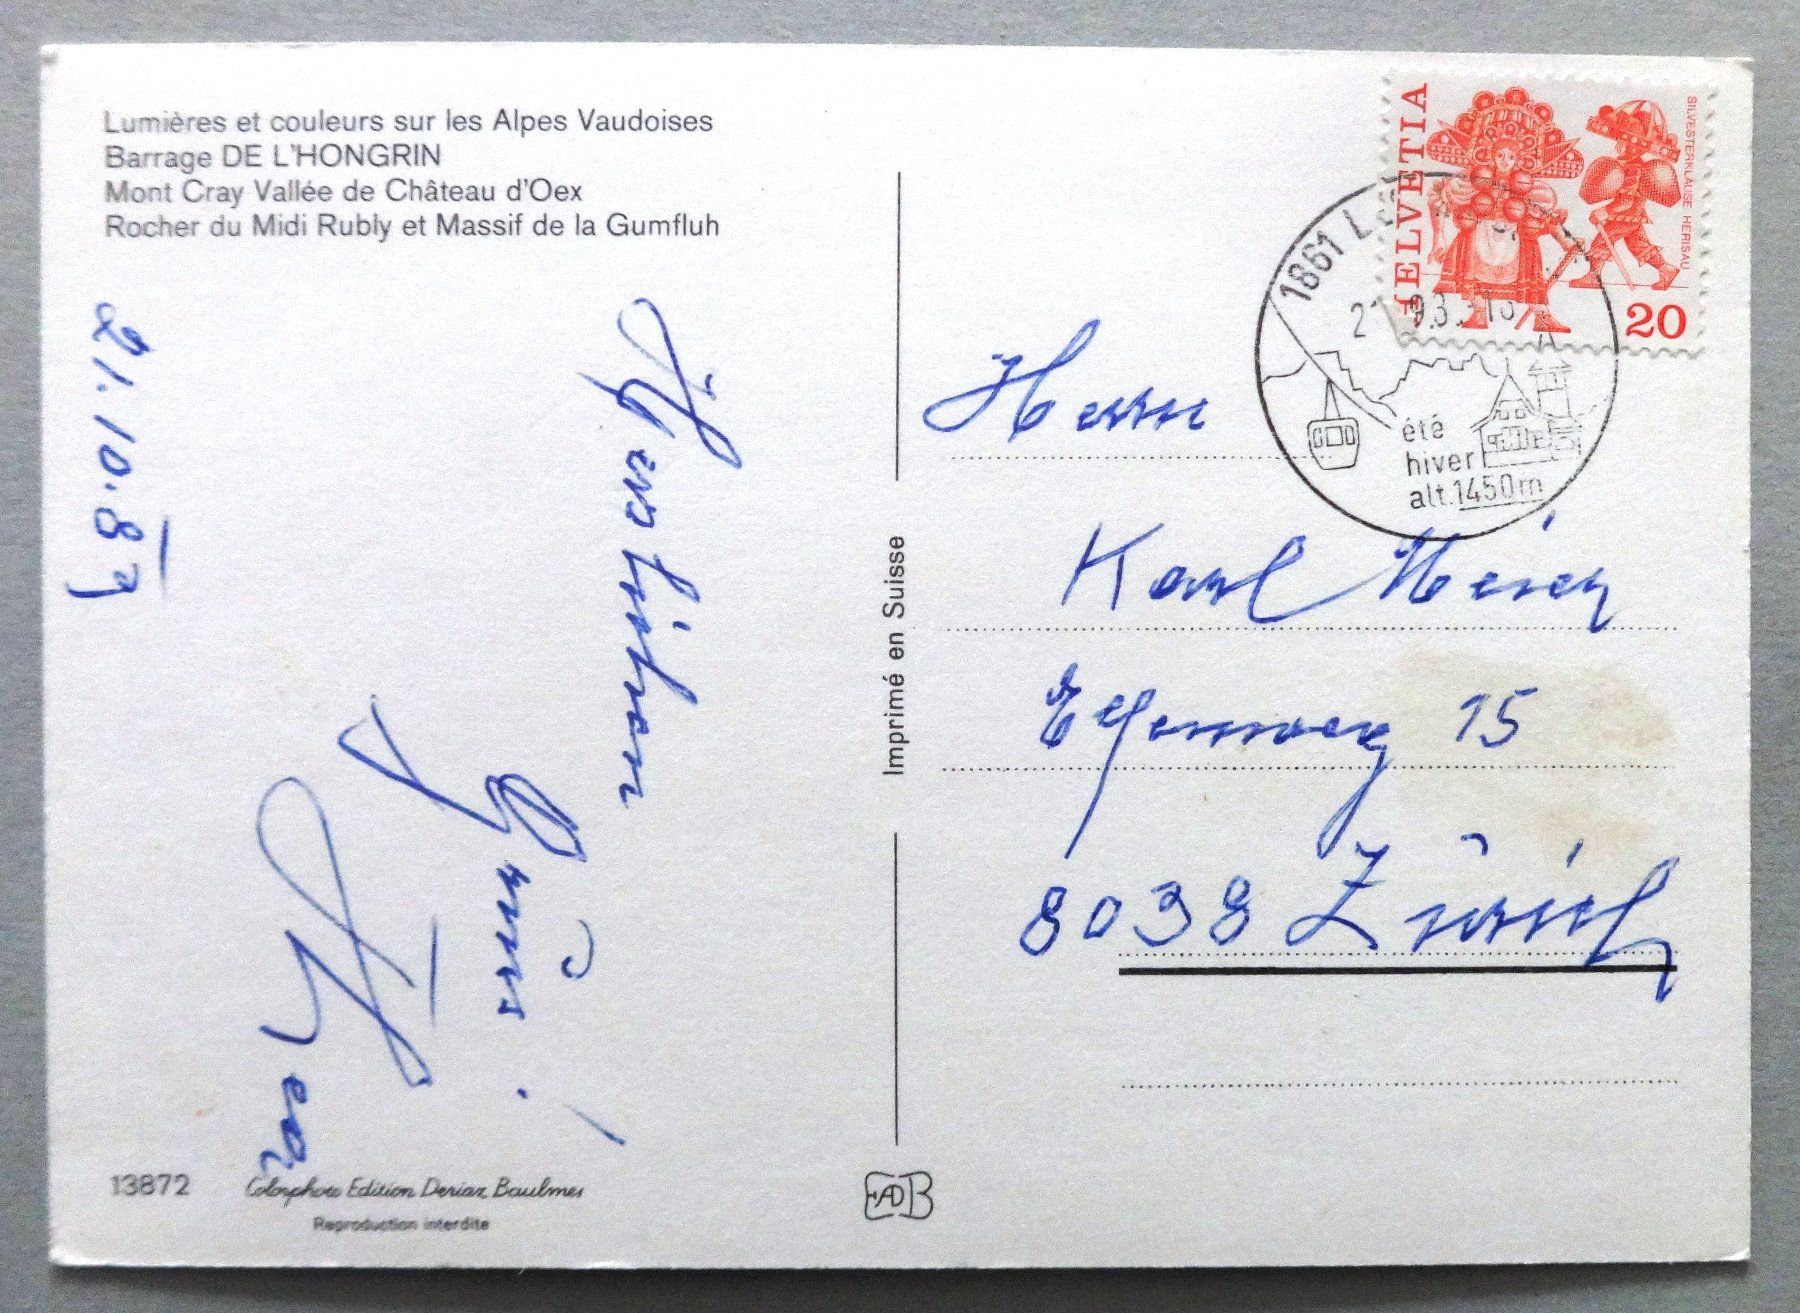 Lumières et couleurs sur les Alpes Vaudoises
Barrage DE L'HONGRIN
Mont Cray Vallée de Château d'Oex
Rocher du Midi Rubly et Massif de la Gumfluh
21.10.83
Herzlichen
Imprimé en Suisse
HELVETIA
SILVESTERKLÄUSE HERISAU
20
1861 L
été
hiver
alt.1450m
Herrn
Karl
15
8038 Zürich
13872
Colorphoto Edition Deriaz Baulmes
Reproduction interdite
EADB